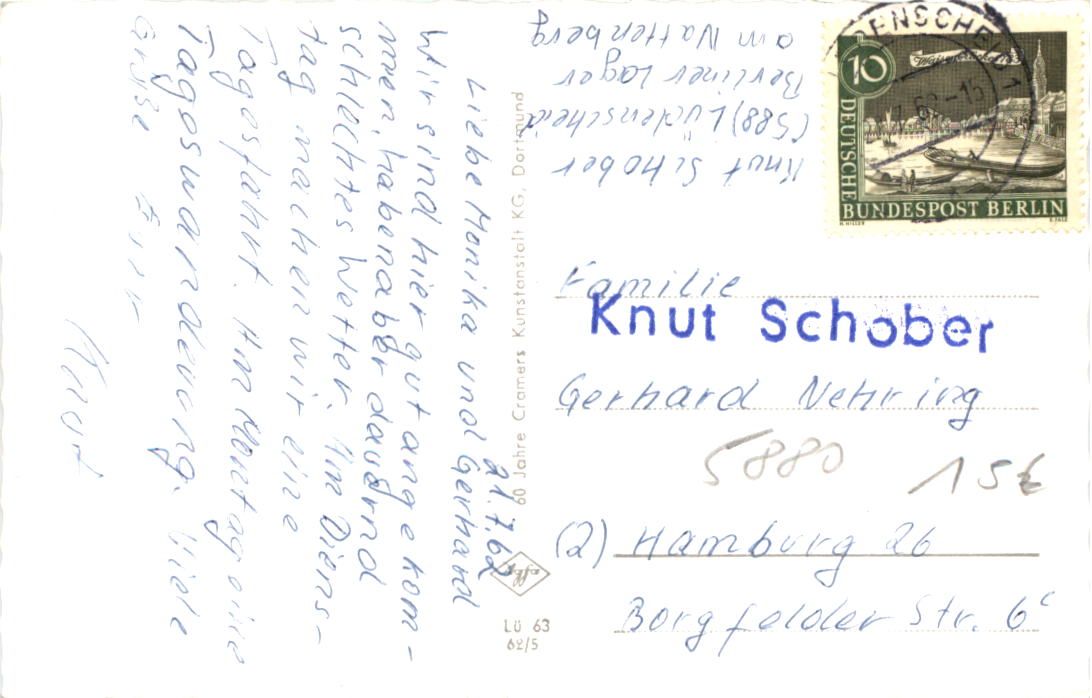 21.7.62
Liebe Monika und Gerhard
Wir sind hier gut angekom-
men, haben aber dauernd
schlechtes Wetter. Am Diens-
tag machen wir eine
Tagesfahrt. Am Montag eine
Tageswanderung. Viele
Grüße Euer
Knut
Knut Schober
(588) Lüdenscheid
Berliner Lager
am Wattenberg
60 Jahre Cramers Kunstanstalt KG, Dortmund
Lü 63
62/5
ENSCHEID 1
62-15
10
DEUTSCHE
BUNDESPOST BERLIN
Familie
Knut Schober
Gerhard Nehring
5880
15
(2) Hamburg 26
Borgfelder Str. 6c